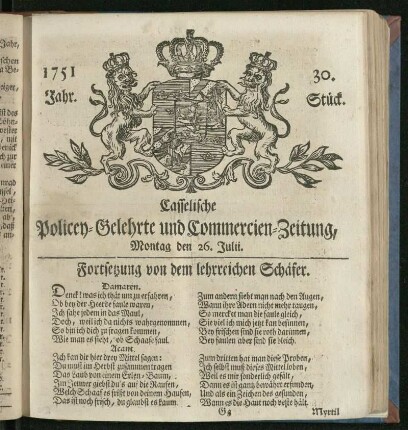 1751
Jahr.
30.
Stück.
Casselische
Policey-Gelehrte und Commercien-Zeitung,
Montag den 26. Julii.
Fortsetzung von dem lehrreichen Schäfer.
Damaren.
Denck! was ich thät um zu erfahren,
Ob bey der Heerde faule waren,
Ich sahe jedem in das Maul,
Doch, weil ich da nichts wahrgenommen,
So bin ich dich zu fragen kommen,
Wie man es sieht, ob Schaafe faul.
Acant.
Ich kan dir hier drey Mittel sagen:
Du must im Herbst zusammen tragen
Das Laub von einem Erlen-Baum,
Im Jenner giebst du's auf die Raufen,
Welch Schaaf es frißt von deinem Haufen,
Das ist noch frisch, du glaubst es kaum.
Zum andern sieht man nach den Augen,
Wann ihre Adern nicht mehr taugen,
So mercket man die faule gleich,
Sie viel ich mich jetzt kan besinnen,
Bey frischen sind sie roth darinnen,
Bey faulen aber sind sie bleich.
Zum dritten hat man diese Proben,
Ich selbst muß dieses Mittel loben,
Weil es mir sonderlich gefält,
Dann es ist gantz bewährt erfunden,
Und als ein Zeichen des gesunden,
Wann es die Haut noch veste hält.
Gg
Myrtil